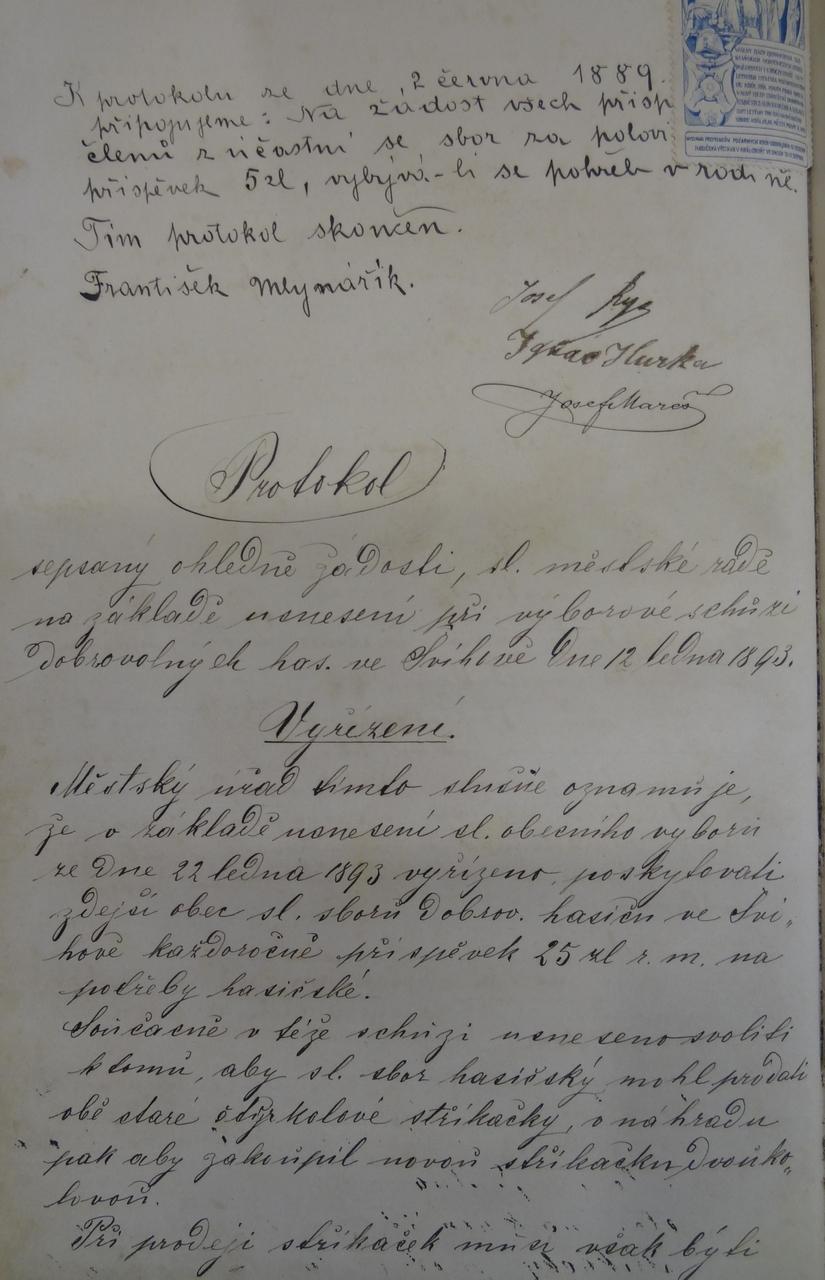 K protokolu ze dne 2 června 1889.
připojujeme: Na žádost všech přisp
členů zúčastní se sbor za polovi
příspěvek 5zl, vybývá-li se pohřeb v rodině.
Tím protokol skončen.
František Mlynářík.
Josef
Ignác Hurka
Josef Mareš
Protokol
sepsaný ohledně žádosti, sl. městské radě
na základě usnesení při výborové schůzi
dobrovolných has. ve Švihově dne 12 ledna 1893.
Vyřízení.
Městský úřad tímto slušně oznamuje,
že v základě usnesení sl. obecního výboru
ze dne 22 ledna 1893 vyřízeno, poskytovati
zdejší obec sl. sboru dobrov. hasičů ve Švi„
hově každoročně příspěvek 25 zl r. m. na
potřeby hasičské.
Současně v téže schůzi usneseno svoliti
k tomu, aby sl. sbor hasičský mohl prodati
obě staré čtyrkolové stříkačky, v náhradu
pak aby zakoupil novou stříkačku dvouko„
lovou.
Při prodeji stříkaček musí však býti